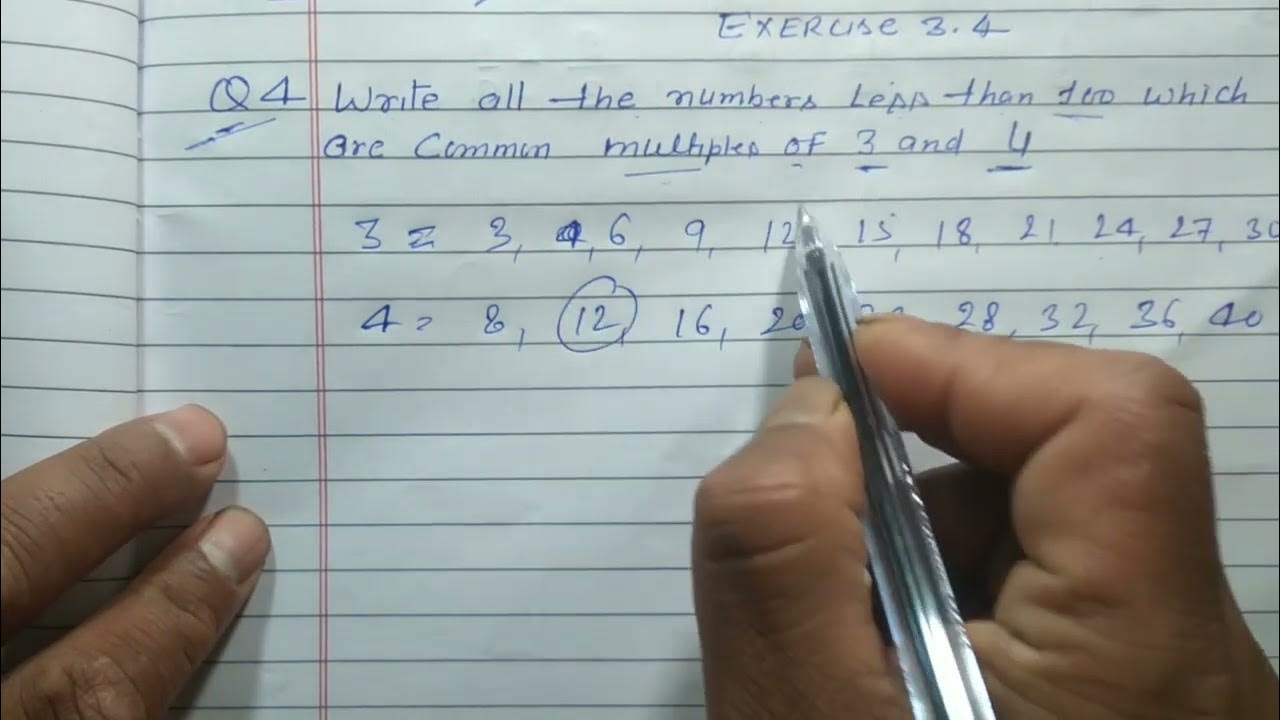 EXERCISE 3.4
Q4 Write all the numbers less than 100 which
are Common multiples of 3 and 4
3 = 3, 6, 9, 12, 15, 18, 21 24, 27, 30
4 = 8, 12, 16, 20 28, 32, 36, 40